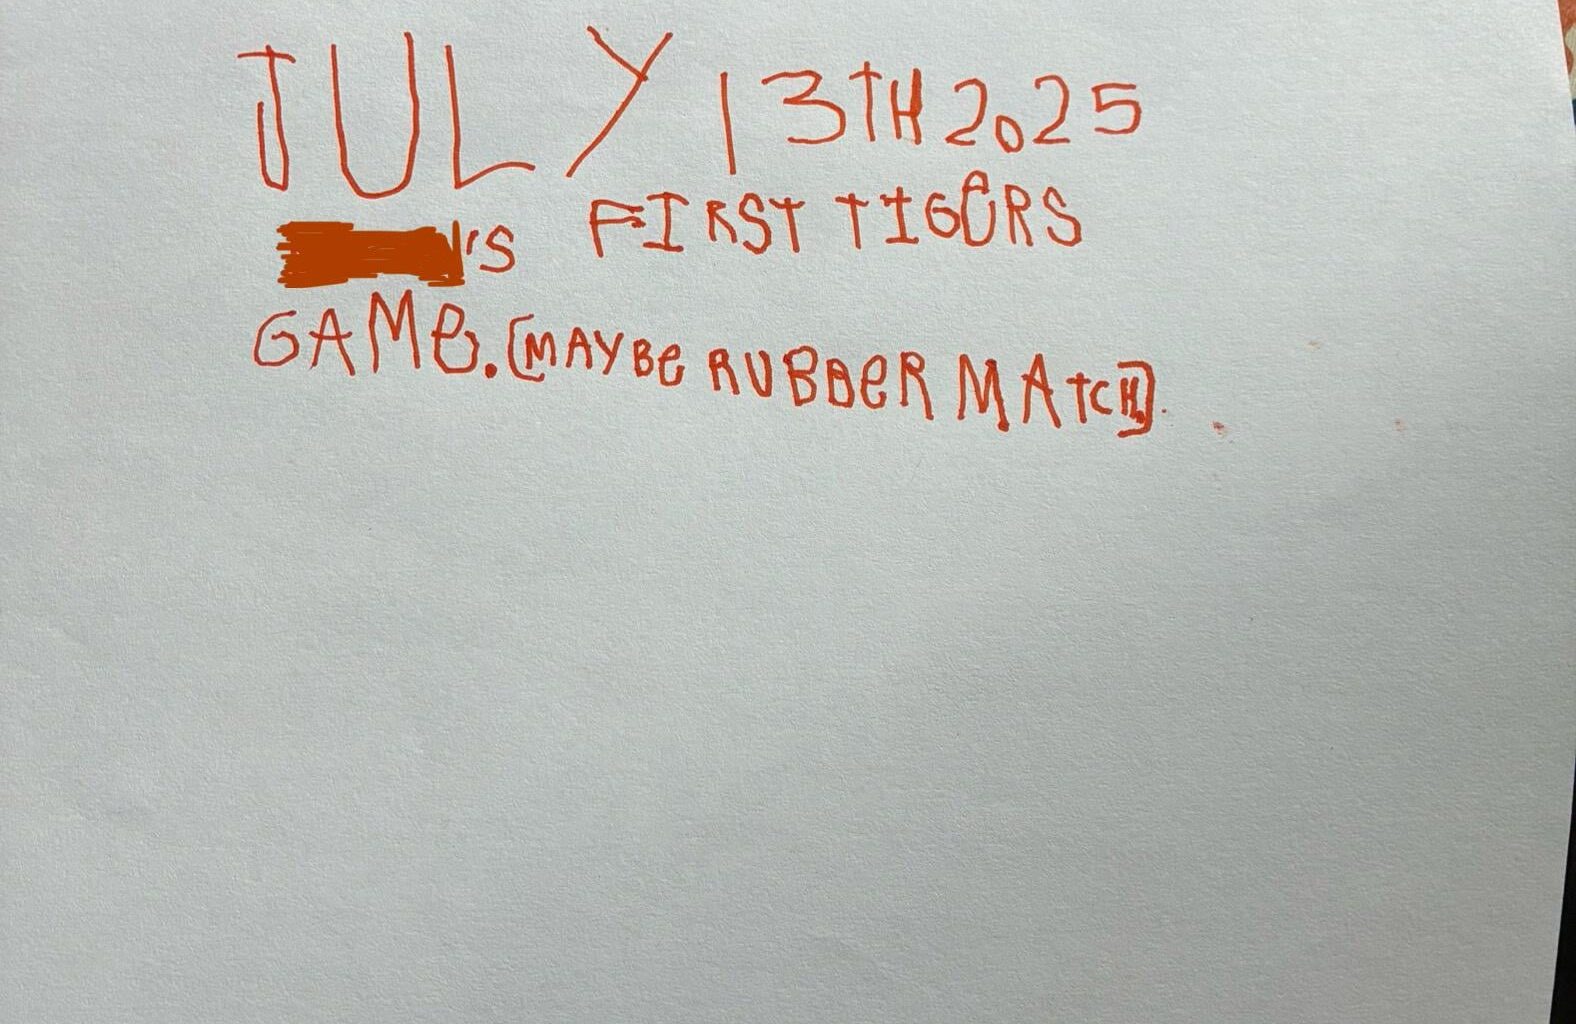 JULY 13TH 2025
's FIRST TIGERS
GAMe. [MAYBe RUBBeR MATCH.]